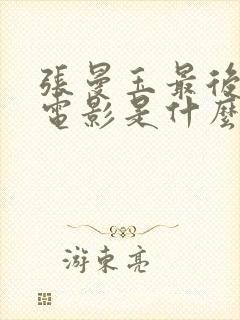 張曼玉最後
電影是什麼
游東亮